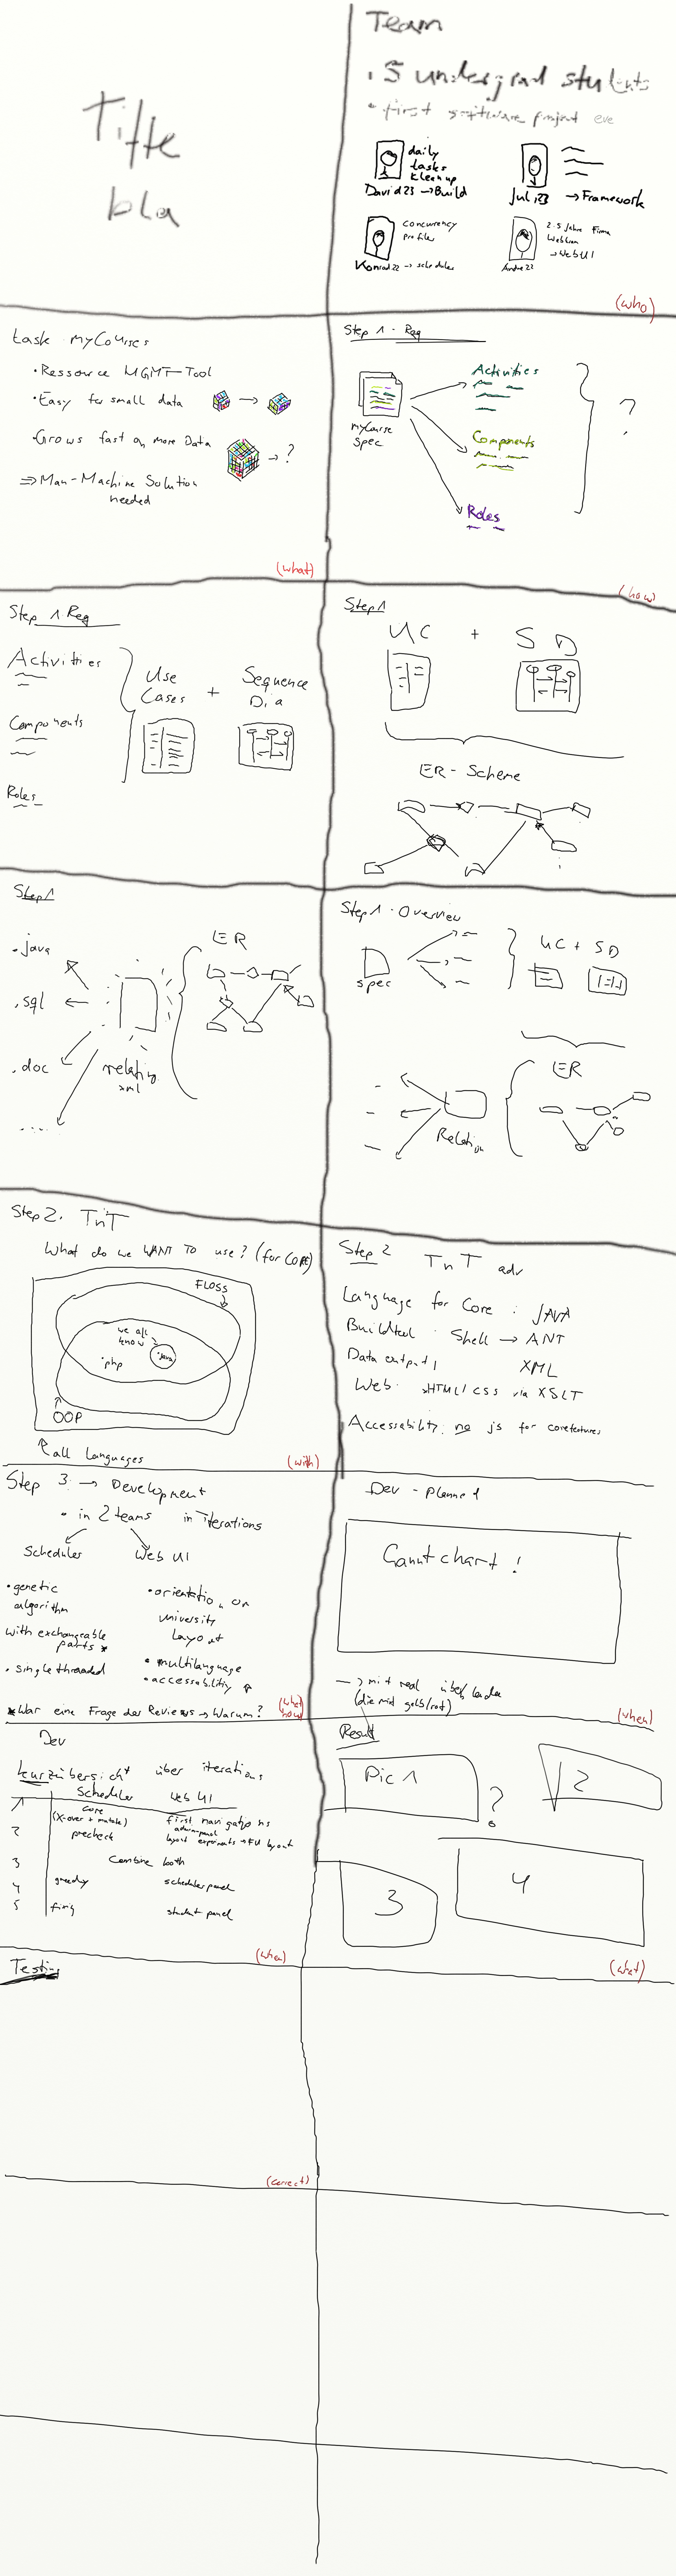 Title
bla
Team
• 5 undergrad students
• first software project eve
daily
tasks
kleanup
David 23 → Build
Juli 23 → Framework
concurrency
profiler
Konrad 22 → scheduler
2.5 Jahre Firma
Webtran
→ Web UI
André 22
(who)
task myCourses
• Ressource MGMT-Tool
• Easy for small data →
• Grows fast on more Data → ?
⇒ Man-Machine Solution
needed
(what)
Step 1 - Req
myCourse
Spec
Activities
Components
Roles
?
(how)
Step 1 Req
Activities
Components
Roles
Use
Cases
+
Sequence
Dia
Step 1
UC + SD
ER - Scheme
Step 1
.java
.sql
.doc
....
relation
xml
ER
Step 1 - Overview
spec
UC + SD
ER
Relation
Step 2. TnT
What do we WANT TO use? (for CORE)
FLOSS
we all
know
•java
•php
OOP
all Languages
(with)
Step 2 TnT adv
Language for Core : JAVA
Buildtool : Shell → ANT
Data output XML
Web: HTML/CSS via XSLT
Accessability: no js for corefeatures
Step 3 → Development
• in 2 teams in iterations
Scheduler
Web UI
• genetic
algorithm
with exchangeable
parts *
• single threaded
• orientation on
university
Layout
• multilanguage
• accessability
* War eine Frage des Reviews → Warum?
(what
how)
Dev - planned
Ganntchart !
→ mit real
(die mit gelb/rot)
(when)
Dev
kurzübersicht über iterations
Scheduler Web UI
1 core
(X-over + mutate) first navigations
2 precheck admin-panel
layout experiments → FU layout
3 Combine both
4 greedy scheduler panel
5 fixing student panel
(when)
Result
Pic 1
?
2
3
4
(what)
Testing
(correct)